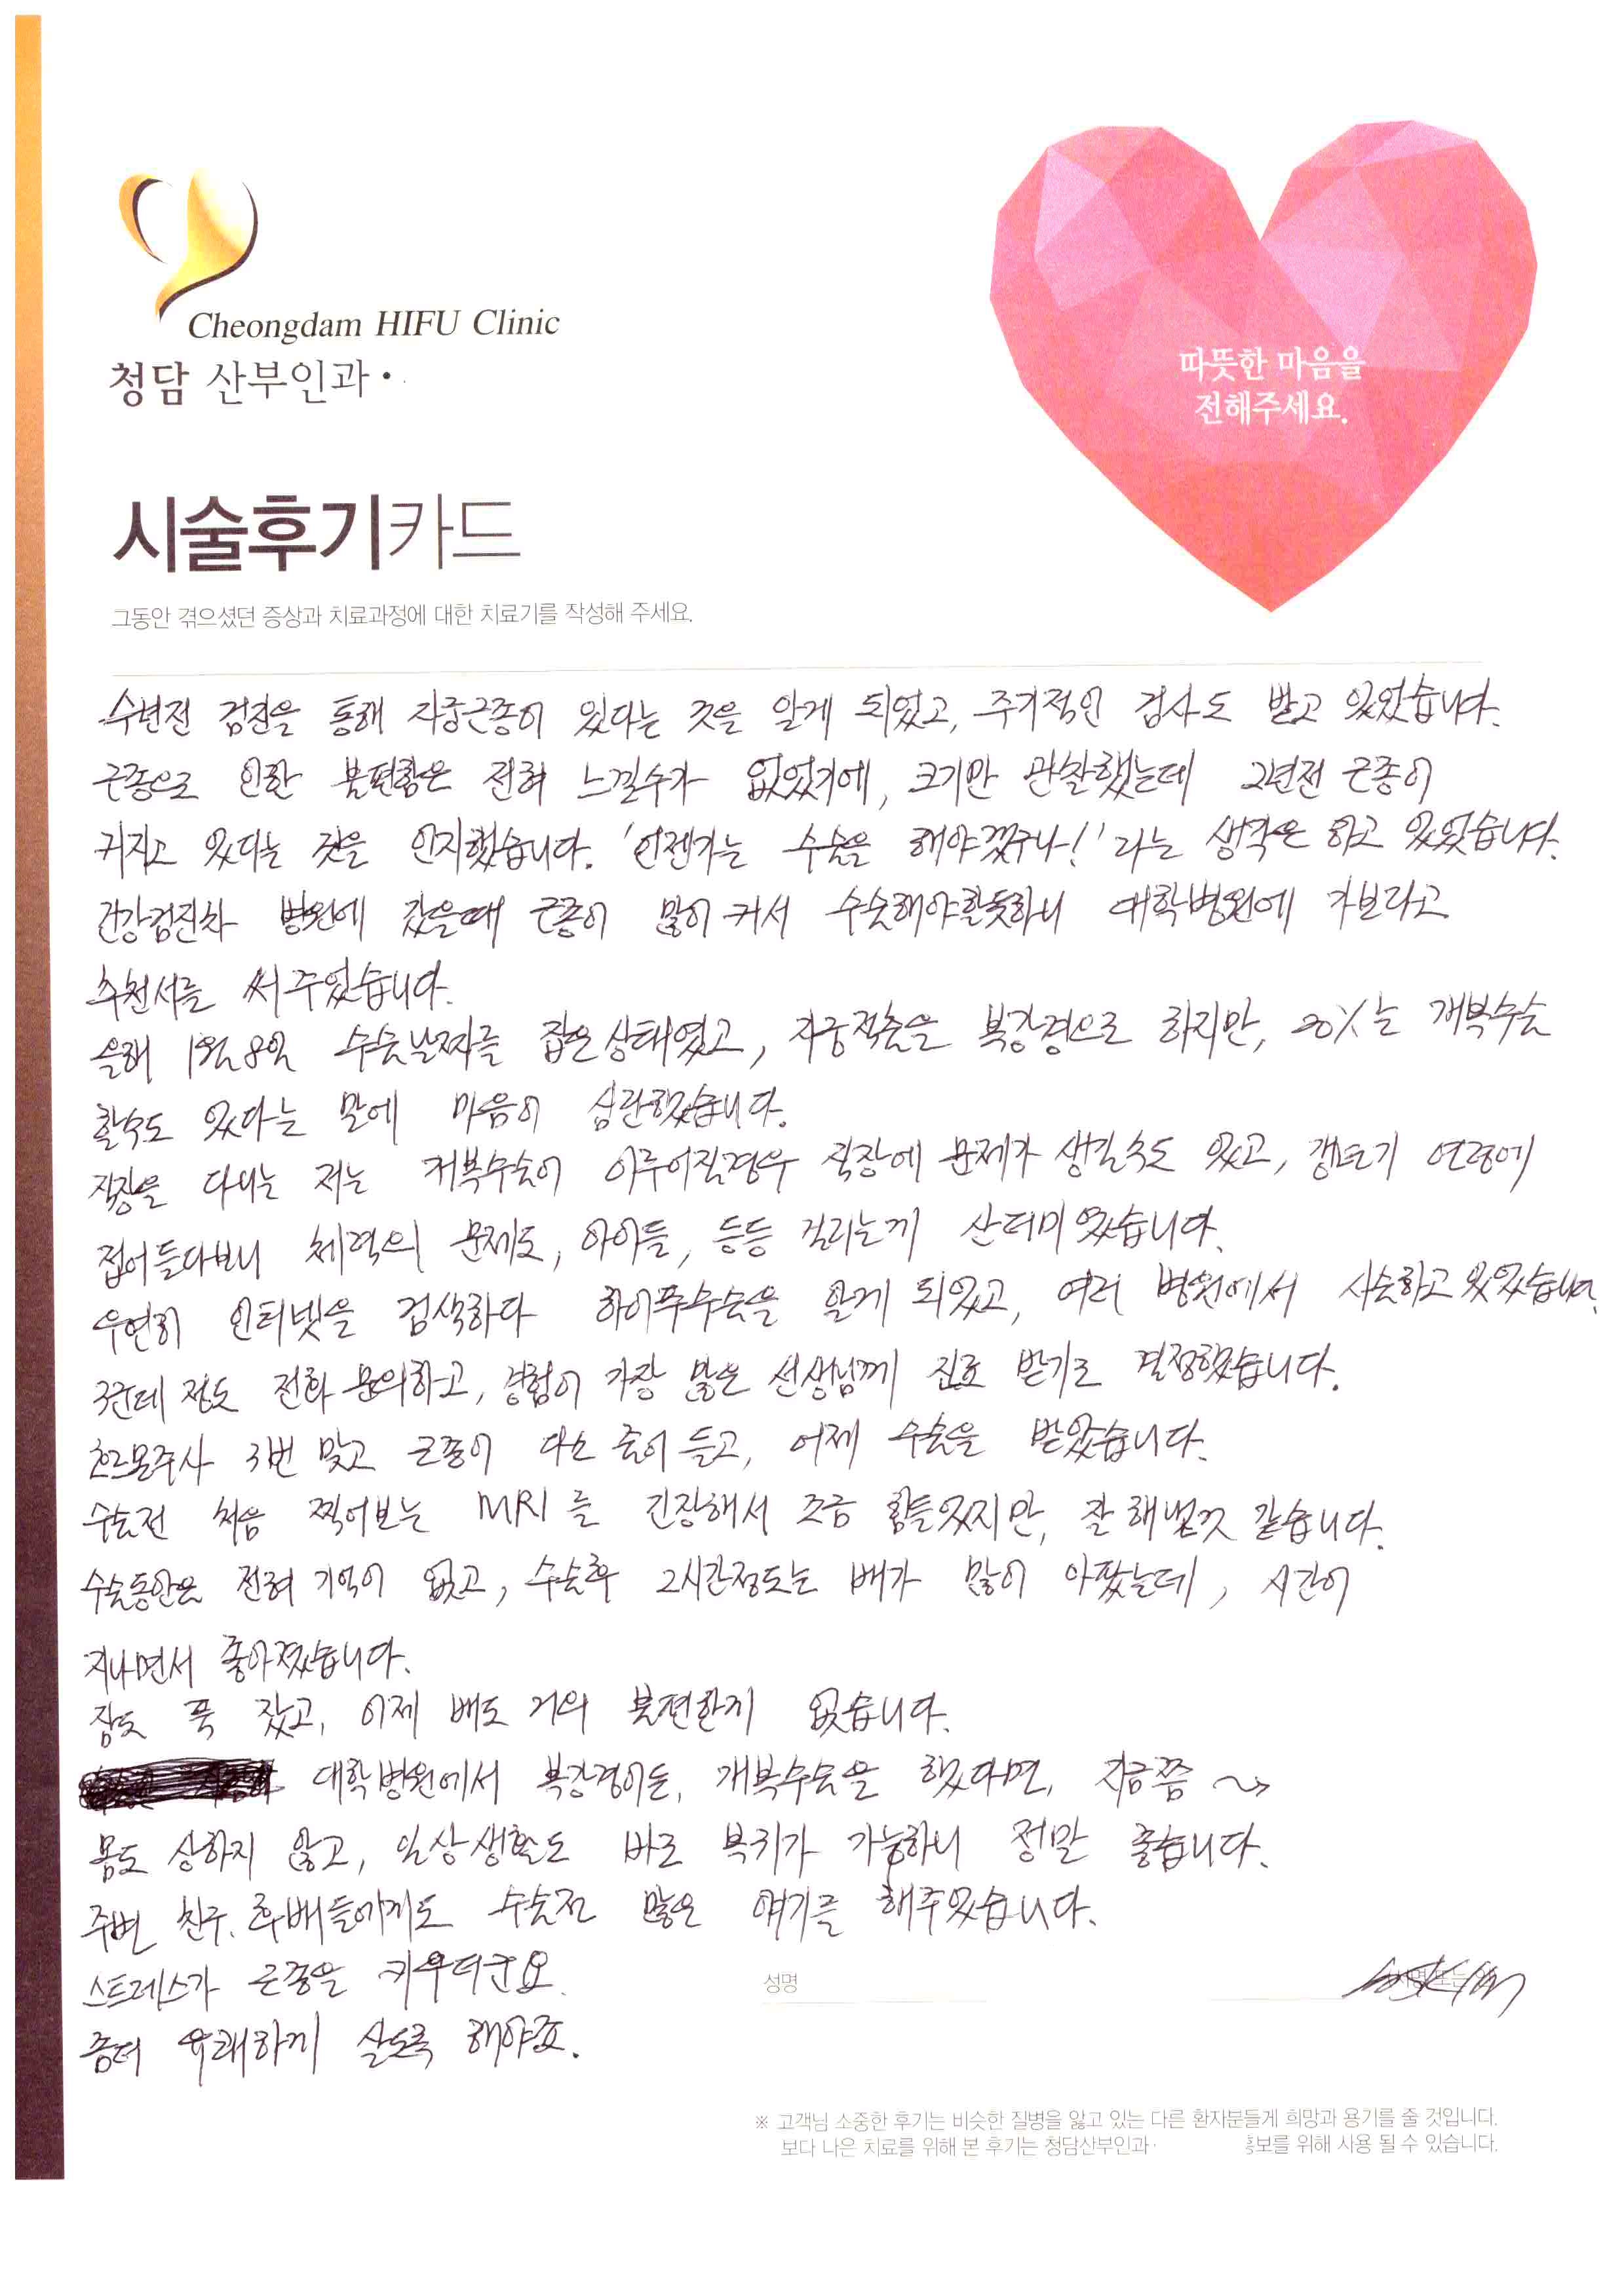 Cheongdam HIFU Clinic
청담 산부인과
따뜻한 마음을
전해주세요.
시술후기카드
그동안 겪으셨던 증상과 치료과정에 대한 치료기를 작성해 주세요.
수년전 검진을 통해 자궁근종이 있다는 것을 알게 되었고, 주기적인 검사도 받고 있었습니다.
근종으로 인한 불편함은 전혀 느낄수가 없었기에, 크기만 관찰했는데 2년전 근종이
커지고 있다는 것을 인지했습니다. '언젠가는 수술을 해야겠구나!' 라는 생각은 하고 있었습니다.
건강검진차 병원에 갔을때 근종이 많이 커서 수술해야할듯하니 대학병원에 가보라고
추천서를 써 주었습니다.
올해 1월 8일 수술날짜를 잡은 상태였고, 자궁적출을 복강경으로 하지만, 20%는 개복수술
할수도 있다는 말에 마음이 심란했습니다.
직장을 다니는 저는 개복수술이 이루어질경우 직장에 문제가 생길수도 있고, 갱년기 연령에
접어들다보니 체력의 문제도, 아이들, 등등 걸리는게 산더미였습니다.
우연히 인터넷을 검색하다 하이푸수술을 알게 되었고, 여러 병원에서 시술하고 있었습니다.
3군데 정도 전화 문의하고, 경험이 가장 많은 선생님께 진료 받기로 결정했습니다.
호르몬주사 3번 맞고 근종이 다소 줄어 들고, 어제 수술을 받았습니다.
수술전 처음 찍어보는 MRI를 긴장해서 조금 힘들었지만, 잘 해낸것 같습니다.
수술동안은 전혀 기억이 없고, 수술후 2시간정도는 배가 많이 아팠는데, 시간이
지나면서 좋아졌습니다.
잠도 푹 잤고, 이제 배도 거의 불편한게 없습니다.
대학병원에서 복강경이든, 개복수술을 했다면, 지금쯤 ~>
몸도 상하지 않고, 일상생활도 바로 복귀가 가능하니 정말 좋습니다.
주변 친구. 후배들에게도 수술전 많은 얘기를 해주었습니다.
스트레스가 근종을 키우더군요.
좀더 유쾌하게 살도록 해야죠.
성명
※ 고객님 소중한 후기는 비슷한 질병을 앓고 있는 다른 환자분들게 희망과 용기를 줄 것입니다.
보다 나은 치료를 위해 본 후기는 청담산부인과· 홍보를 위해 사용 될 수 있습니다.